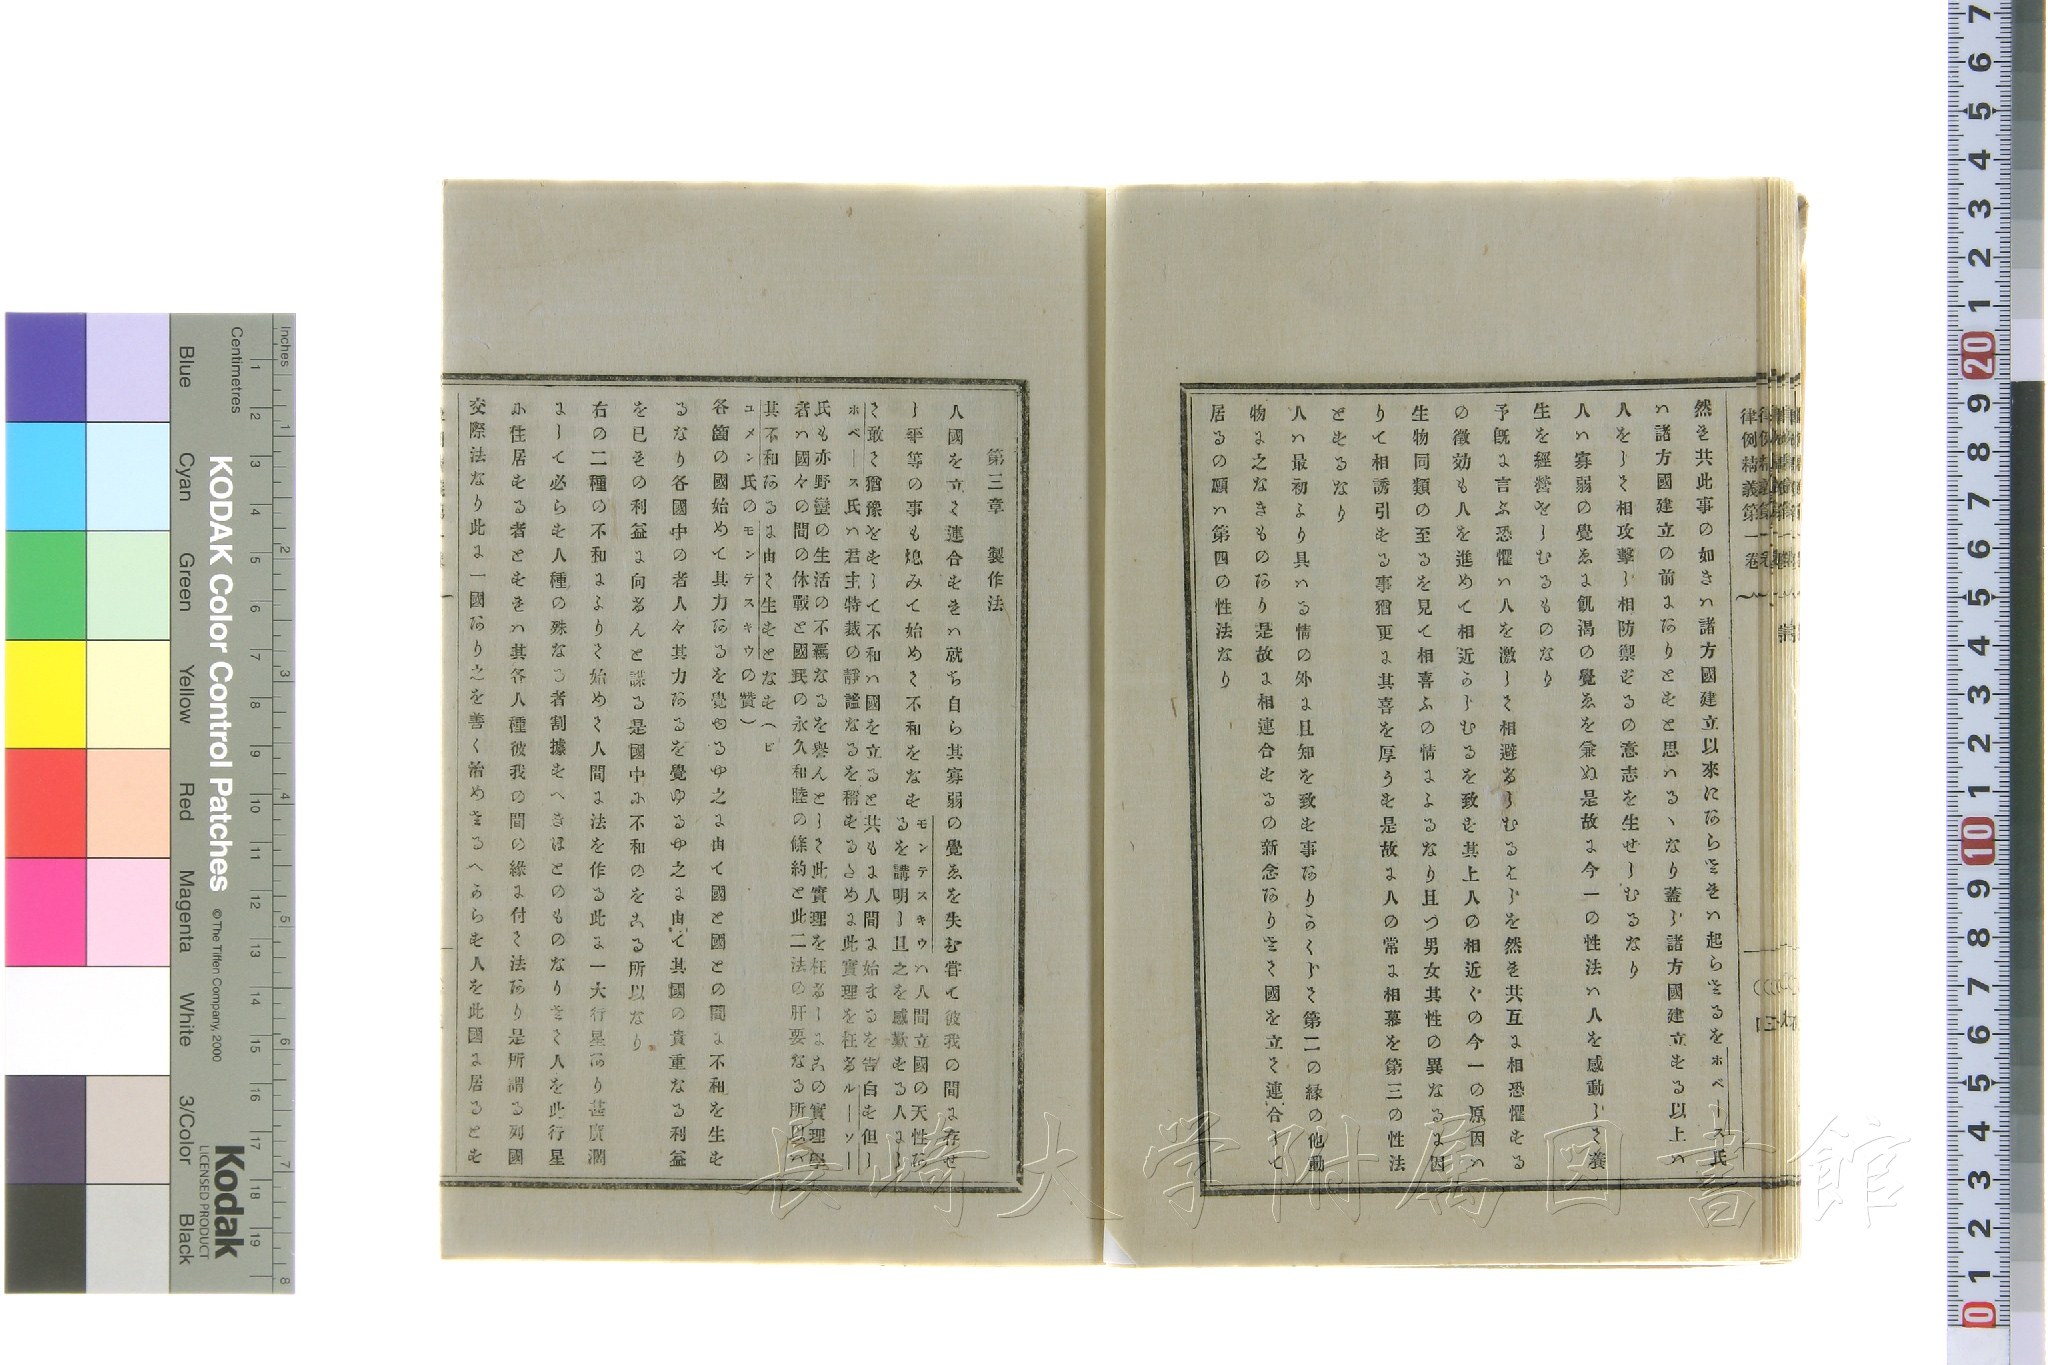 律例精義第一卷
然𛁑共此事の如きハ諸方國建立以來にあらざれハ起らざるをホベース氏
ハ諸方國建立の前にありとすと思ハるヽなり蓋し諸方國建立する以上ハ
人をして相攻擊し相防禦するの意志を生せしむるなり
人ハ寡弱の覺ゑに飢渴の覺ゑを兼ぬ是故に今一の性法ハ人を感動して養
生を經營をしむるものなり
予旣に言ふ恐懼ハ人を激して相避るしむると然𛁑共互に相恐懼する
の徵効も人を進めて相近らしむるを致す其上人の相近くの今一の原因ハ
生物同類の至るを見て相喜ふの情によるなり且つ男女其性の異なるに因
りて相誘引する事猶更に其喜を厚うす是故に人の常に相慕を第三の性法
とするなり
人ハ最初より具ハる情の外に且知を致す事あり
物に之なきものあり是故に相連合するの新念ありて國を立て連合して
居るの願ハ第四の性法なり
第三章 製作法
人國を立て連合するきハ就ち自ら其寡弱の覺ゑを失む嘗て彼我の間に存せ
し平等の事も熄みて始めて不和をなす
モンテスキウハ人間立國の天性
るを講明し且之を感歎する人に
て敢て猶豫をもして不和ハ國を立ると共もに人間に始まるを告白す但し
ホベース氏ハ君主特裁の靜謐なるを稱するために此實理を枉るルーソー
氏も亦野蠻の生活の不羈なるを譽んとして此實理を枉る
者ハ國々の間の休戰と國民の永久和陸の條約と此二法の肝要なる所以ハ
其不和あるに由て生すとなす（ビ
ユメン氏のモンテスキウの贊）
各箇の國始めて其力あるを覺ゆるや之に由て國と國との間に不和を生す
るなり各國中の者人々其力あるを覺ゆるや之に由て其國の貴重なる利益
を已𛁑の利益に向るんと謀る是國中に不和のをる所以なり
右の二種の不和によりて始めて人間に法を作る此に一大行星あり甚廣濶
にして必らす人種の殊なる者割據すへきほとのものなりて人を此行星
に住居する者とすきハ其各人種彼我の間の緣に付て法あり是所謂る列國
交際法なり此に一國あり之を善く治めざるへらす人を此國に居るとす
長崎大学附属図書館
KODAK Color Control Patches
© The Tiffen Company, 2000
Kodak
LICENSED PRODUCT
Blue
Cyan
Green
Yellow
Red
Magenta
White
3/Color
Black
Inches
Centimetres